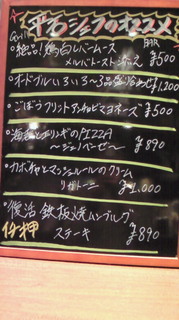 平日シェフのオススメ
・絶品!鶏白レバームース
メルバトースト添え ¥500
・オードブルいろいろ~3品盛合せ~ ¥1,200
・ごぼうフリット アンチョビマヨネーズ ¥500
・海老とエリンギのPIZZA
~ジェノベーゼ~ ¥890
・カボチャとマッシュルームのクリーム
リガトーニ ¥1,000
・復活 鉄板焼ハンブルグ
ステーキ ¥890